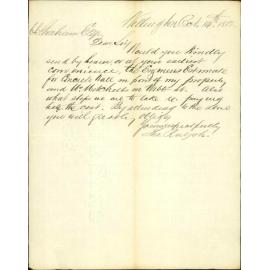 Wellington Oct 14th
Graham Esqr
Dear Sir
Would you kindly
send by bearer or at your earliest
convenience, the Engineers Estimate
for in front of my property
and Mr Mitchell's in Webb St. Also
what steps we are to take re paying
the cost. By attending to the same
you will greatly oblige
Yours respectfully